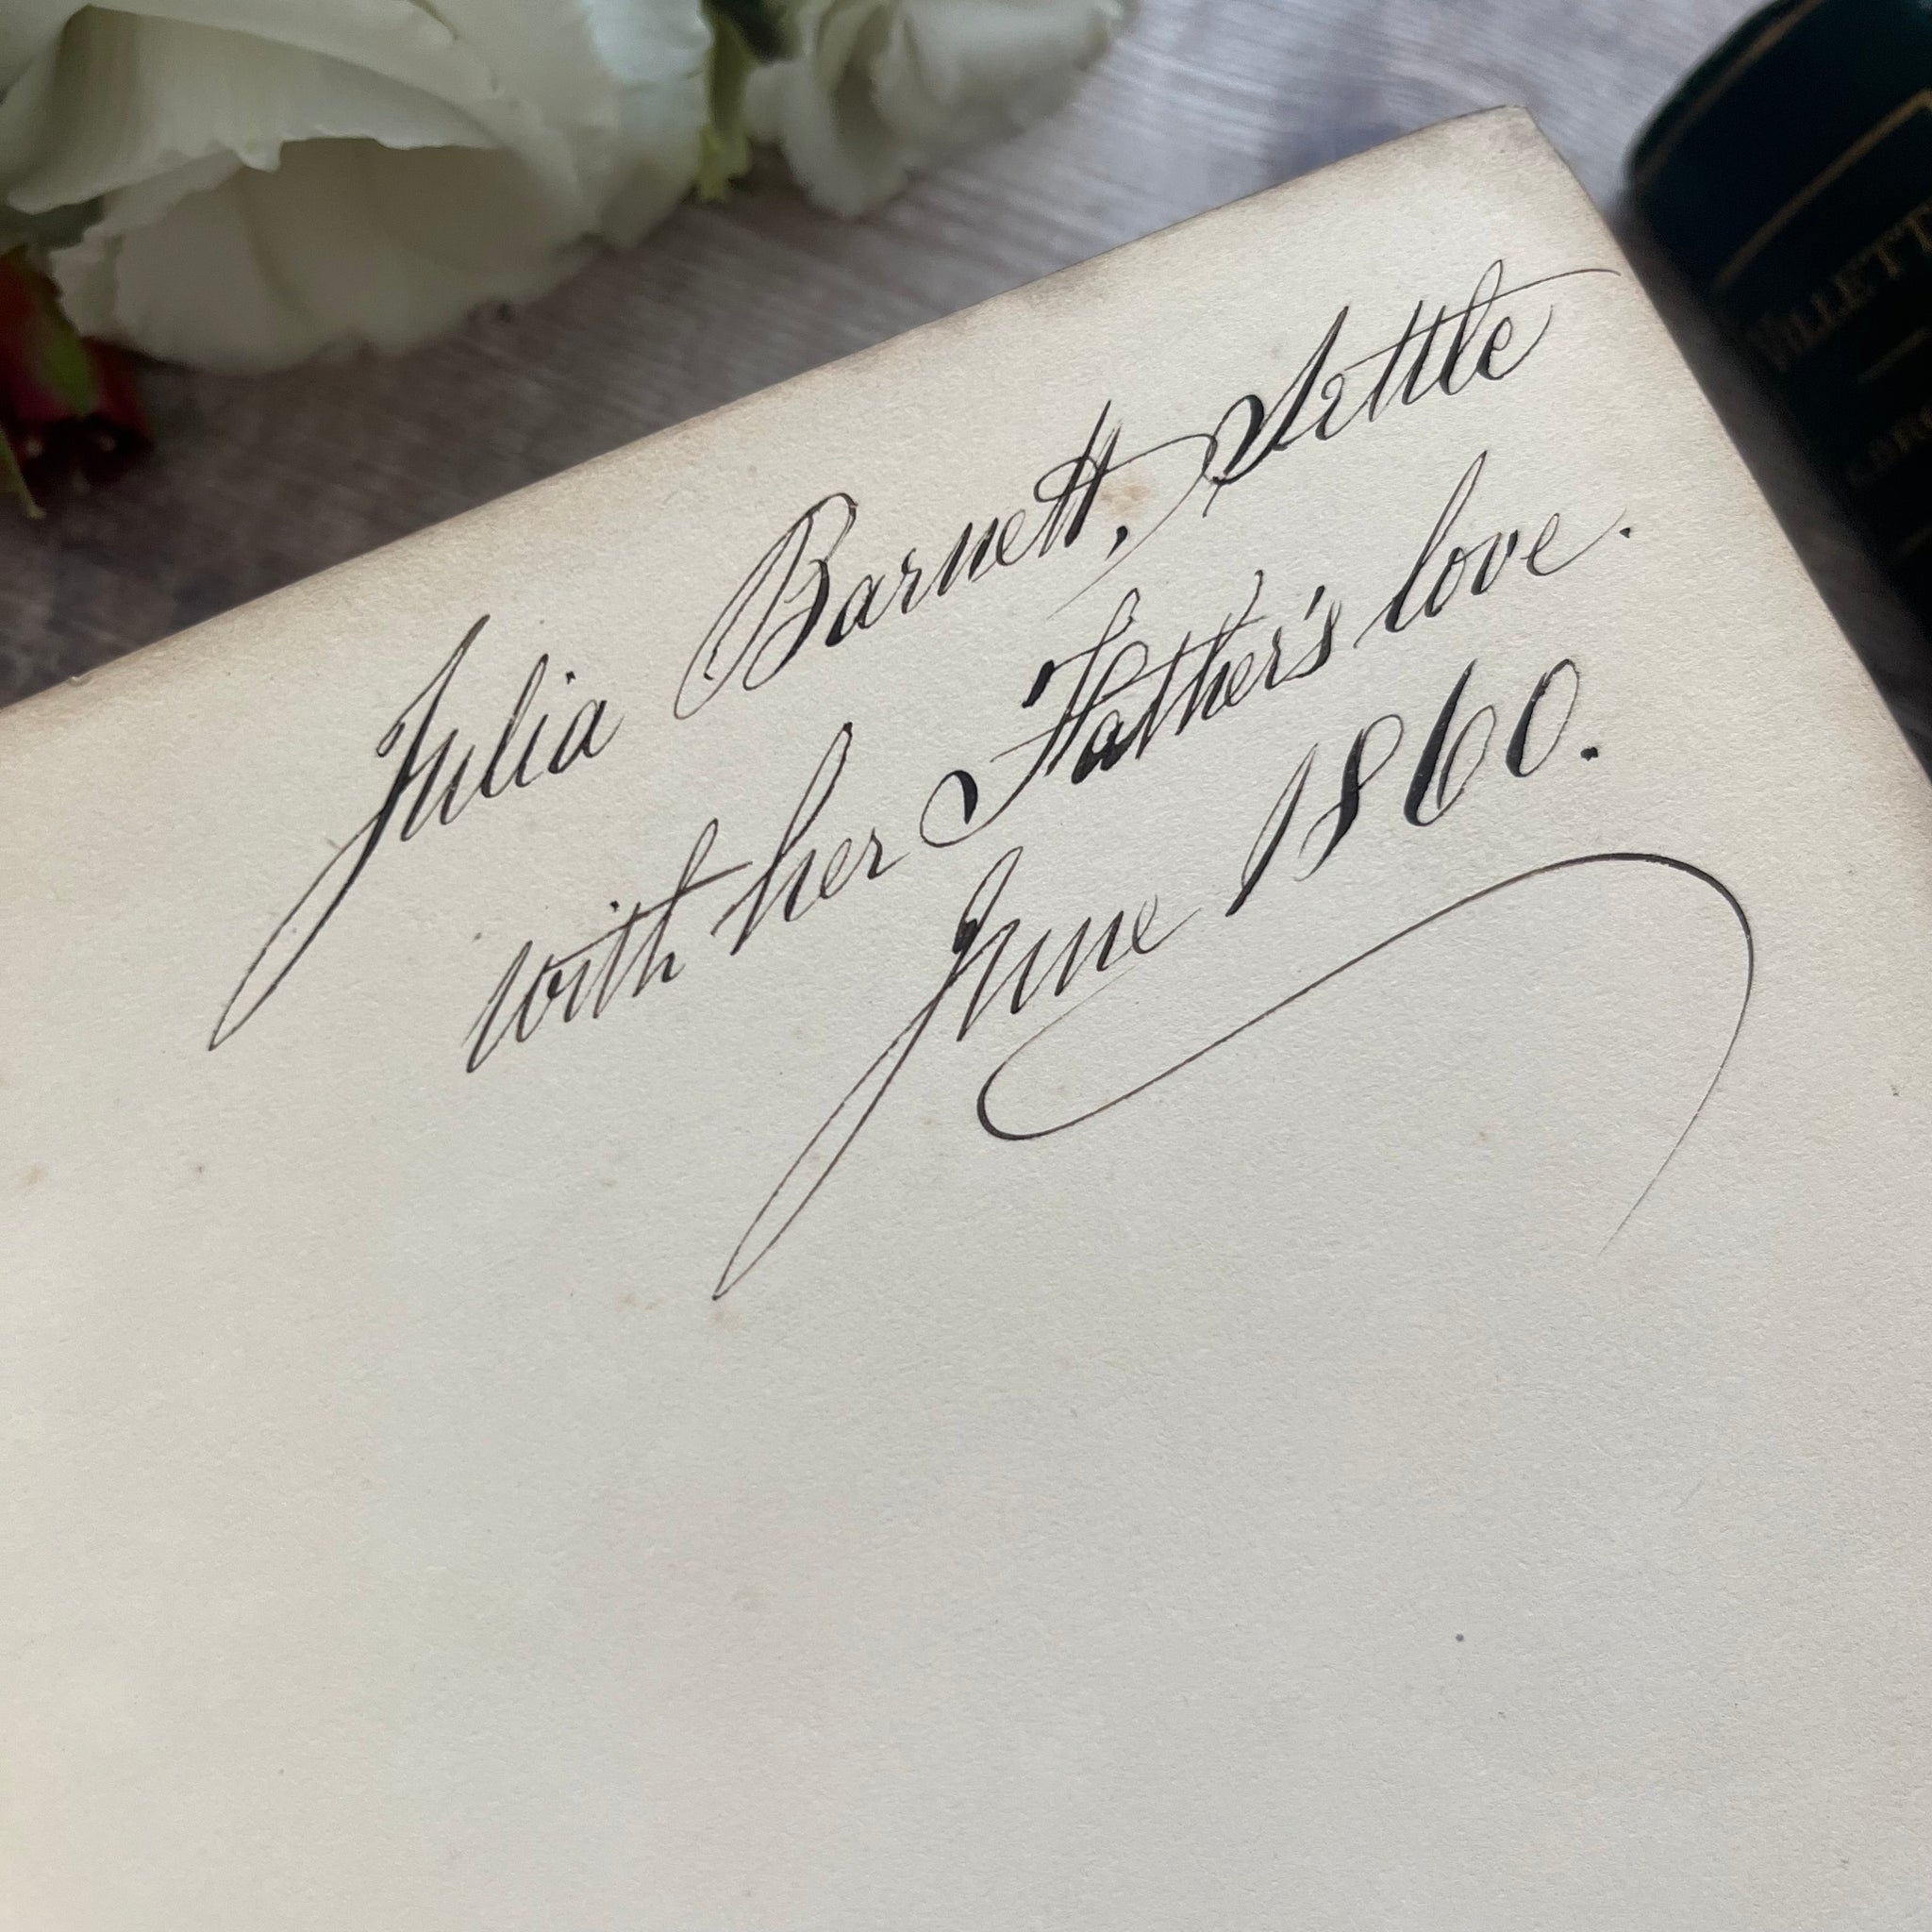 Julia Barnett, Settle
with her Father's love.
June 1860.
VILLETT